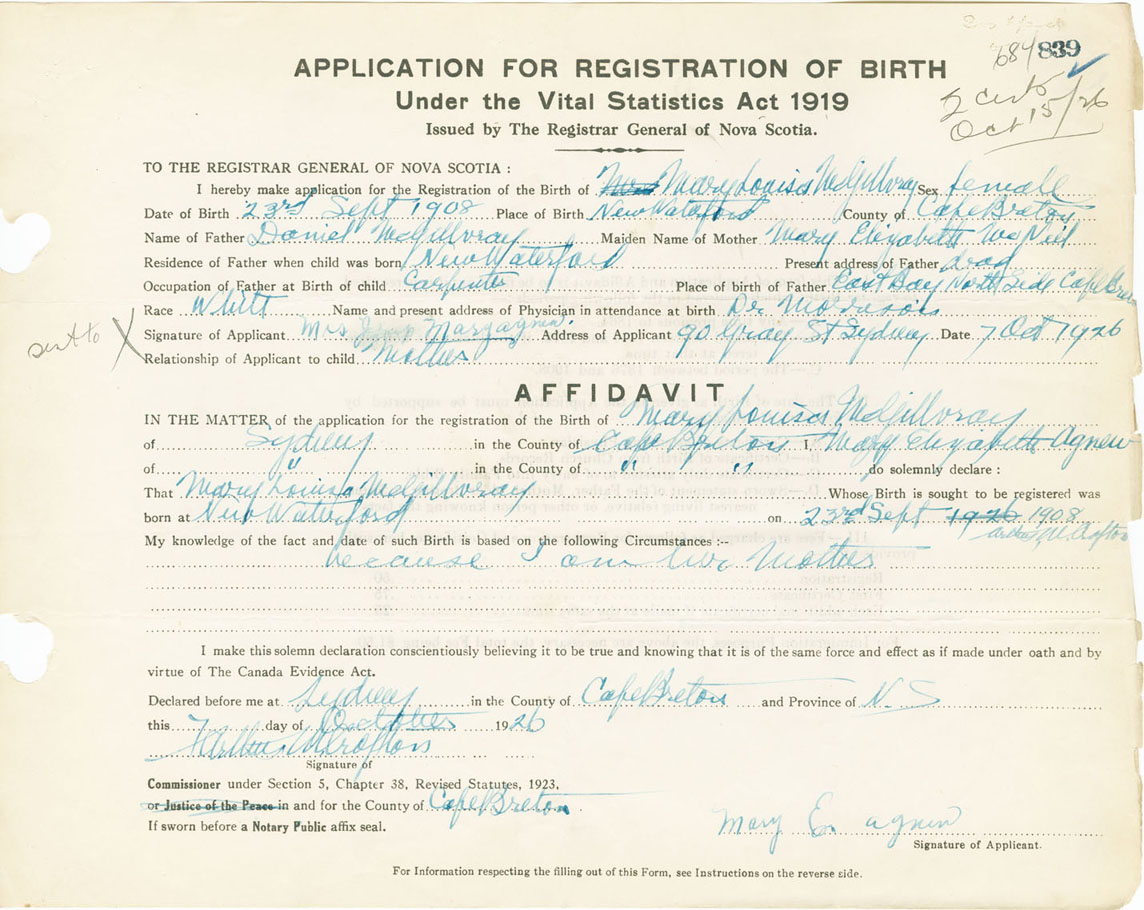 684 839
2 certs
Oct 15/26
APPLICATION FOR REGISTRATION OF BIRTH
Under the Vital Statistics Act 1919
Issued by The Registrar General of Nova Scotia.
TO THE REGISTRAR GENERAL OF NOVA SCOTIA :
I hereby make application for the Registration of the Birth of Mary Louisa McGillvray Sex female
Date of Birth 23rd Sept 1908 Place of Birth New Waterford County of Cape Breton
Name of Father Daniel McGillvray Maiden Name of Mother Mary Elizabeth McNeil
Residence of Father when child was born New Waterford Present address of Father dead
Occupation of Father at Birth of child Carpenter Place of birth of Father East Bay North Side Cape Breton
Race White Name and present address of Physician in attendance at birth Dr Morrison
sent to X Signature of Applicant Mrs Mary Agnew. Address of Applicant 90 Gray St Sydney Date 7 Oct 1926
Relationship of Applicant to child Mother
AFFIDAVIT
IN THE MATTER of the application for the registration of the Birth of Mary Louisa McGillvray
of Sydney in the County of Cape Breton I, Mary Elizabeth Agnew
of " in the County of " " do solemnly declare :
That Mary Louisa McGillvray Whose Birth is sought to be registered was
born at New Waterford on 23rd Sept 1926 1908
My knowledge of the fact and date of such Birth is based on the following Circumstances :-
because I am her Mother
I make this solemn declaration conscientiously believing it to be true and knowing that it is of the same force and effect as if made under oath and by
virtue of The Canada Evidence Act.
Declared before me at Sydney in the County of Cape Breton and Province of N. S
this 7 day of October 1926
Signature of
Commissioner under Section 5, Chapter 38, Revised Statutes, 1923,
or Justice of the Peace in and for the County of Cape Breton.
If sworn before a Notary Public affix seal.
Mary E. Agnew
Signature of Applicant.
For Information respecting the filling out of this Form, see Instructions on the reverse side.